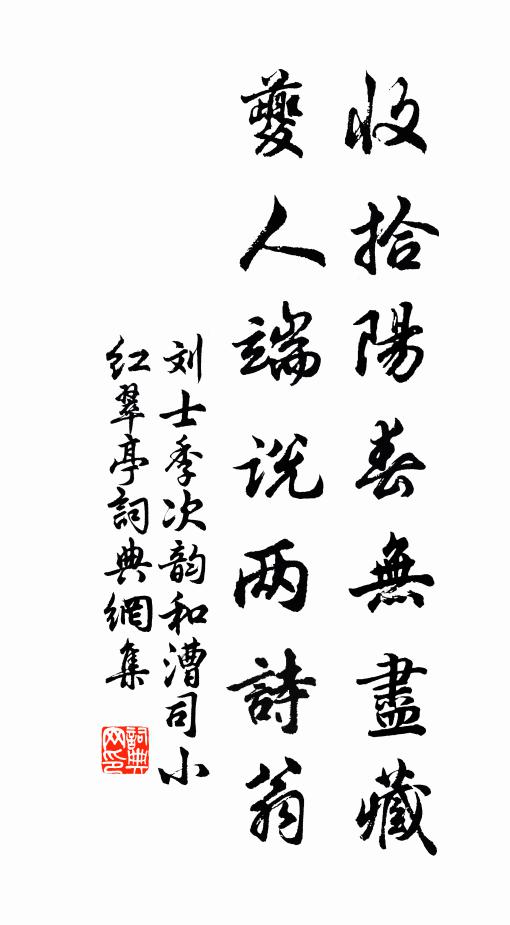 收拾陽春無盡藏
夔人端説两詩翁
刘士季次韵和漕司小
红翠亭詞典網集
詞典网印